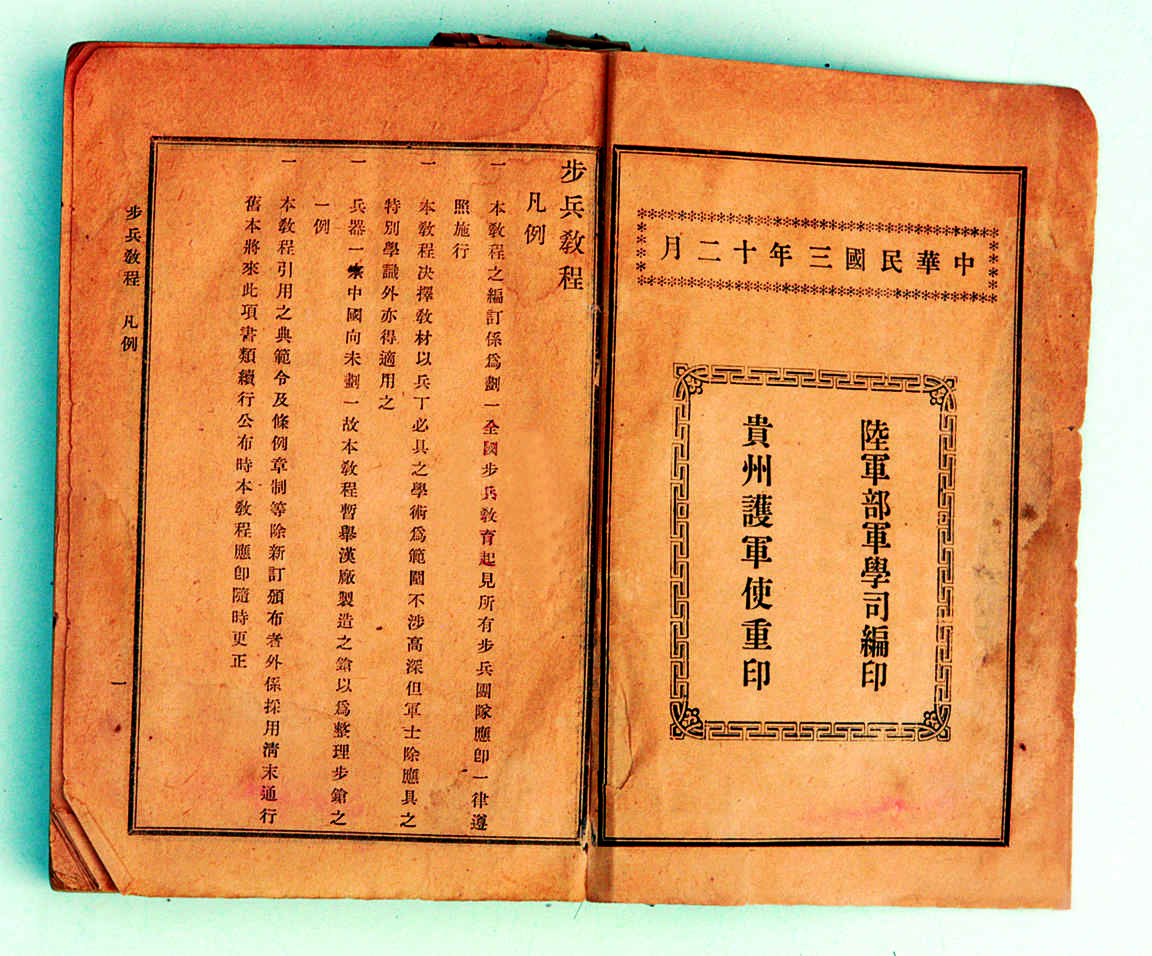 中華民國三年十二月
陸軍部軍學司編印
貴州護軍使重印
步兵教程
凡例
一 本教程之編訂係爲劃一全國步兵教育起見所有步兵團隊應卽一律遵
照施行
一 本教程決擇教材以兵丁必具之學術爲範圍不涉高深但軍士除應具之
特別學識外亦得適用之
一 兵器一宗中國向未劃一故本教程暫舉漢廠製造之鎗以爲整理步鎗之
一例
一 本教程引用之典範令及條例章制等除新訂頒布者外係採用淸末通行
舊本將來此項書類續行公布時本教程應卽隨時更正
步兵教程 凡例
一